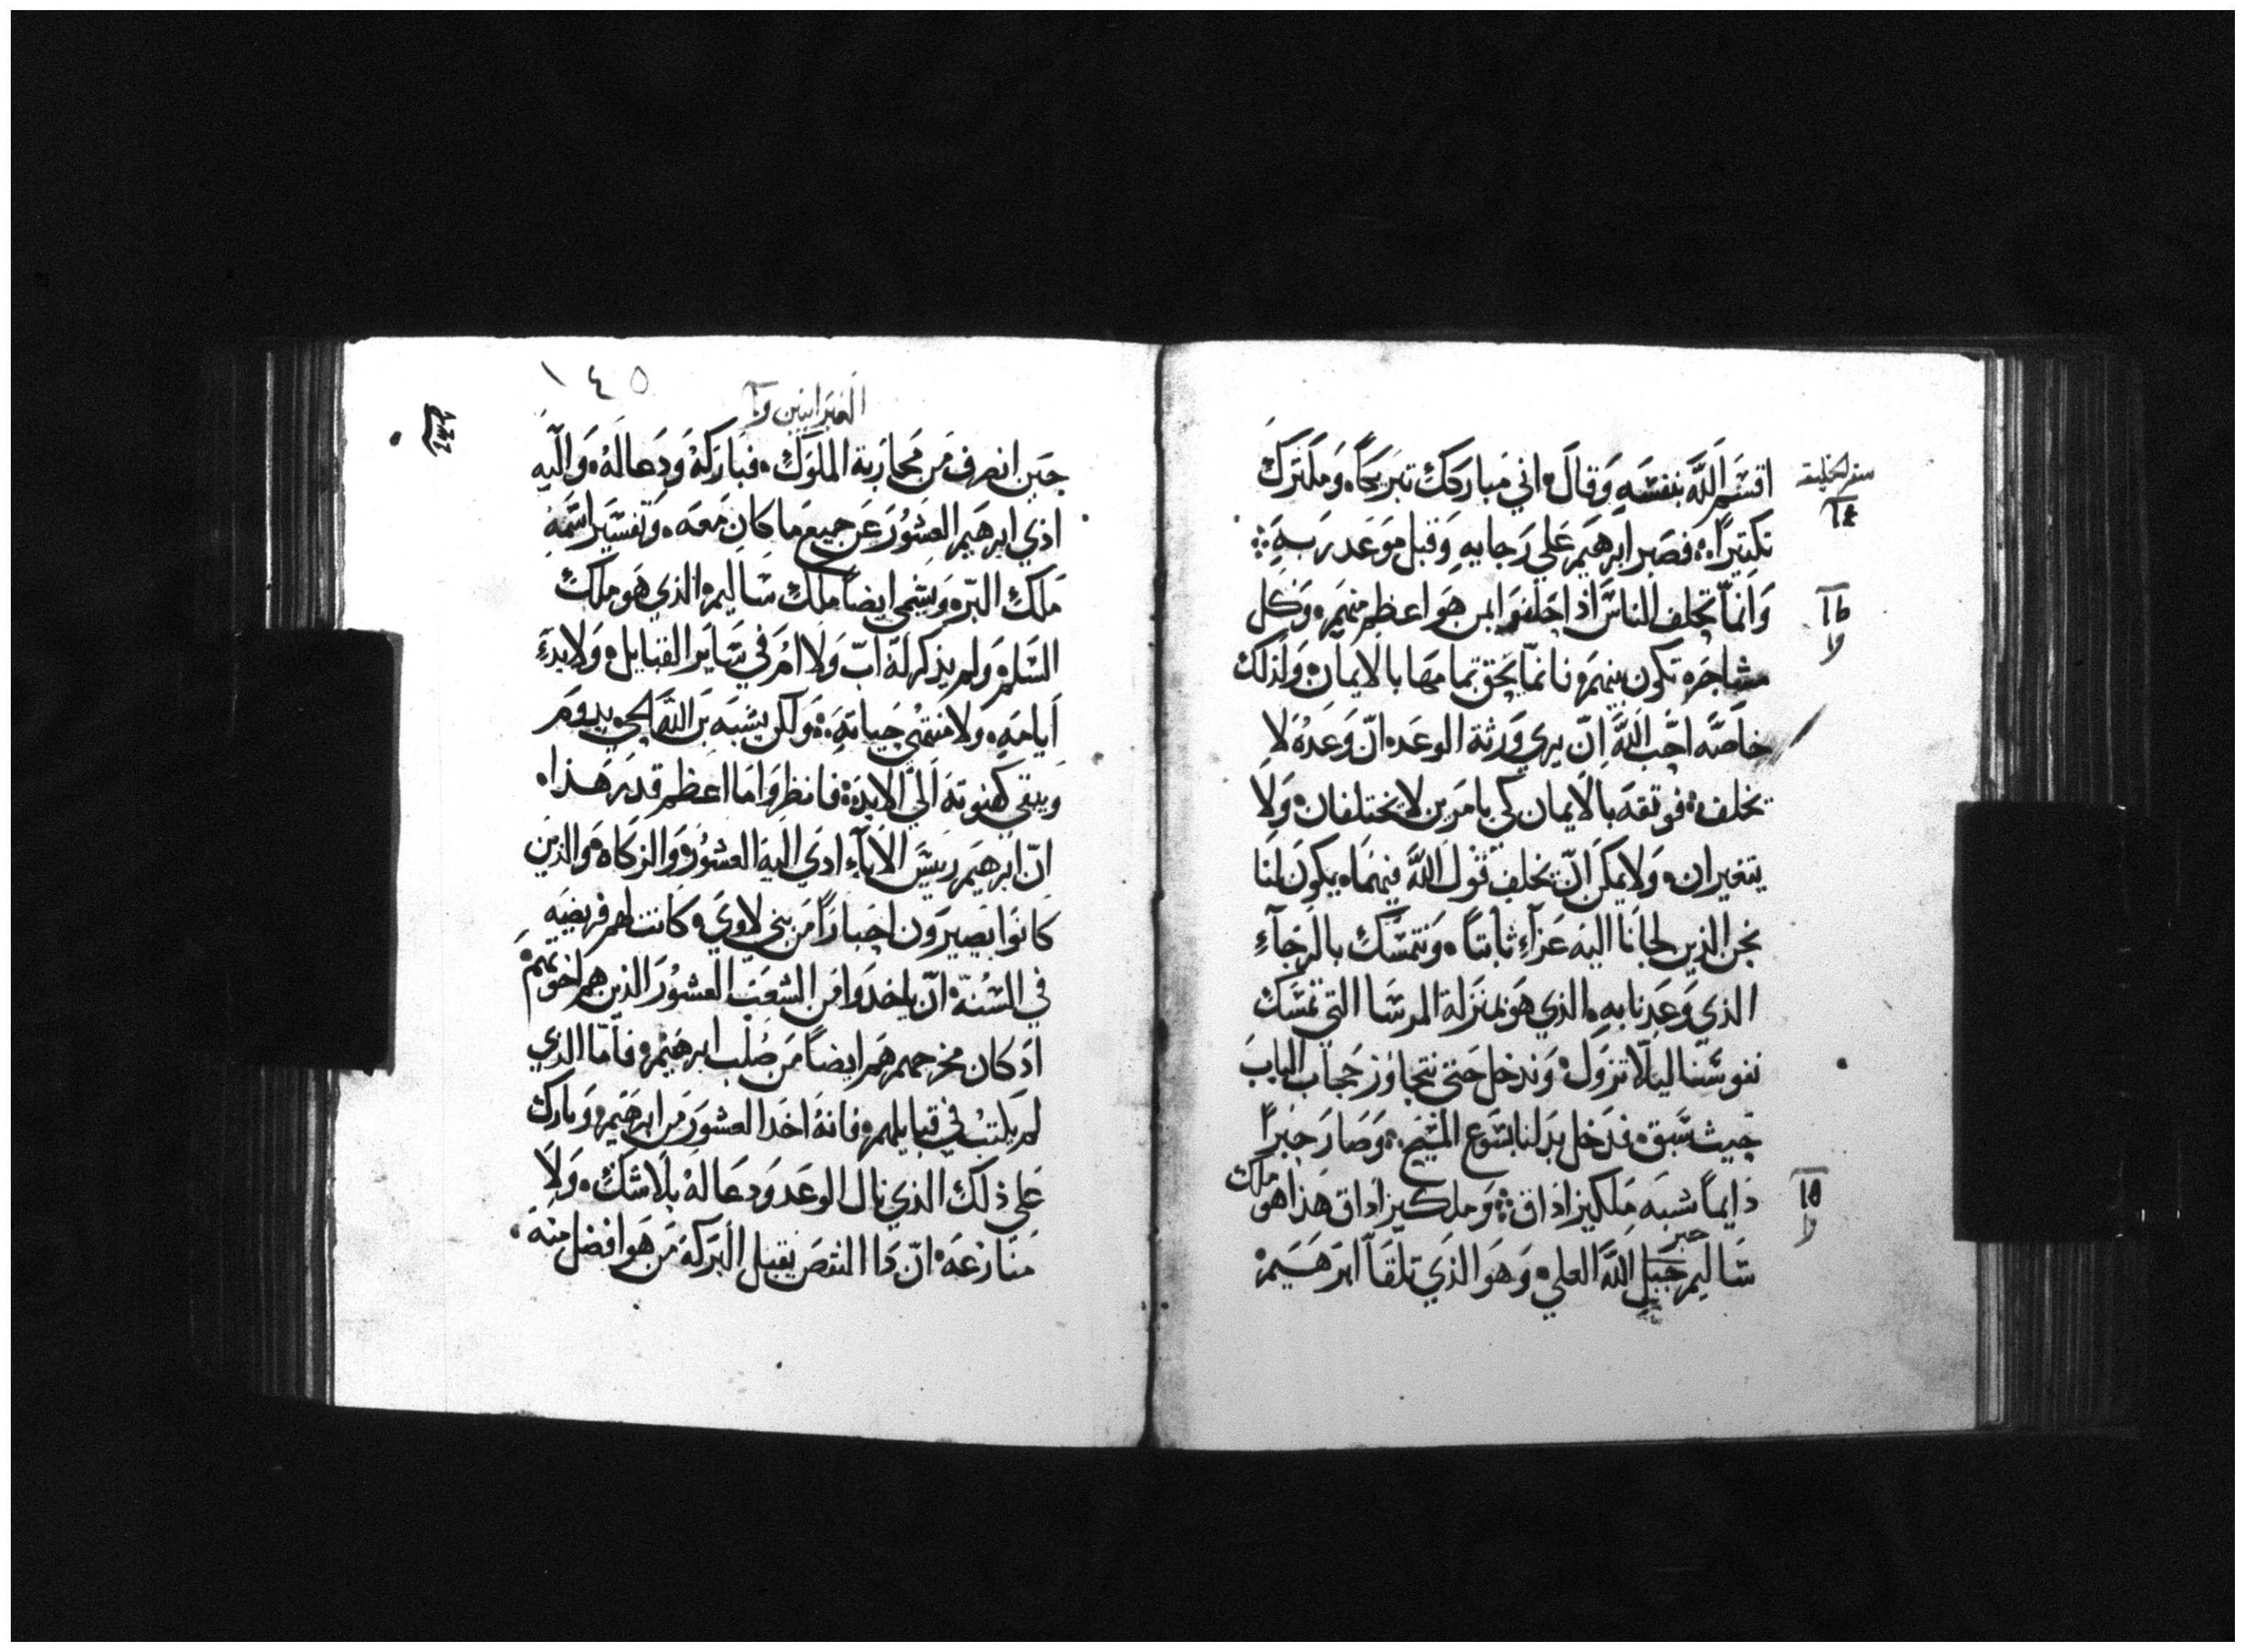 اقسَم اللَّه بنفسَهِ وَقالَ اني مَباركك تبَريَكاً ومكَترك
تكتيراً فصَبر ابرهَيم عَلي رَجايهِ وَقبل موَعَد رَبهِ
وَانماّ تحلف الناسَّ اذا حَلفوَا بمن هَوَ اعظم منهَم وَكل
مشاجَره تكون بينهمَ فانمّا يحَقق تمامهَا بالايمان وَلذلك
خاصَّه احَّب اللَّه انّ يري وَرثة الوعَد انّ وَعدهُ لا
يخلف فوتقهَ بالايمان كي بامرَين لا يختلفان وَلا
يتغيران وَلا يمكن انّ يخلف قوْل اللَّه فيهمَا يكون لنا
نحَن الذين لجانا اليهَ عَزآء ثابتاً وَنتمسَّك بالرَجآء
الذي وَعَدنا بهِ الذي هَو بمنزلة المرسَا التي تمسَك
نفوسَّنا ليَلّا تزوَل وَندخل حَتي نتجاوَز حَجاب الباب
حَيث سَّبق فدَخل بدَلنا يسَوع المسَيح وَصَارَ حَبراً
دَايماً شبهَ مَلكيزادَاق وَملكيزادَاق هَذا هوَ ملك
سَّاليم حَبل اللَّه العلي وَهَوَ الذَي تلقاَّ ابرَهَيَم
حبر
سفر الخليقه
١٤
العَبَرانيين
١٤٥
حَين انصرف مَن مَحارَبة الملوَك فبَارَكهَ وَدَعا لهَ وَاليه
ادَي ابرهَيم العشوُرَ عَن جميع مَا كان مَعهَ وَتفسَير اسَمهَ
مَلك البّر وَيسَمي ايضاً ملك سَّاليم الذي هَو ملك
السَّلم وَلم يذكر لهَ ابّ وَلا امُ في سَايَر القبايل وَلا بدَء
اَيامهِ وَلا منتهَي حَياتهِ وَلكن يشَبهَ بَن اللَّه الحَي يدوَم
وَيبَقي كهنوتهَ الَي الابد فانظروَا مَا اعظم قدَرَ هَذا
انّ ابرهَيم ريَسَ الاباء ادَي اليهَ العشوُرَ وَالزكاه وَالذينَ
كانَوا يَصيرَون احَباراً مَن بني لاوَي كانتَ لهم فريضيَه
في السُنهّ انّ ياخدَوا مَن الشعبَ العشوُرَ الذين هم اخوَتهم
ادَ كان مخرجَهم هَم ايضاً مَن صُلب ابرهَيم فامَّا الذي
لم يكتبْ في قبايلهم فانهُ اخدَ العشوَرَ مَن ابرهَيم وَبارَك
عَلي ذلك الذي نال الوعَد وَدعَا لهُ بلاَ شَك وَلا
منَازَعَه انّ دَا النقص يقبل البَركهَ مَن هَوَ افضل منهَ